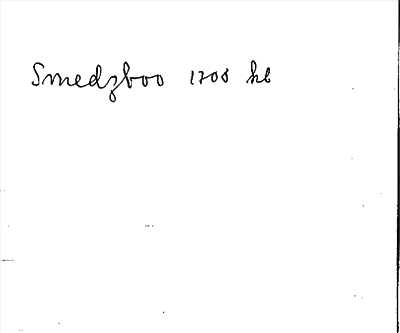 Smedzboo 1708 hb